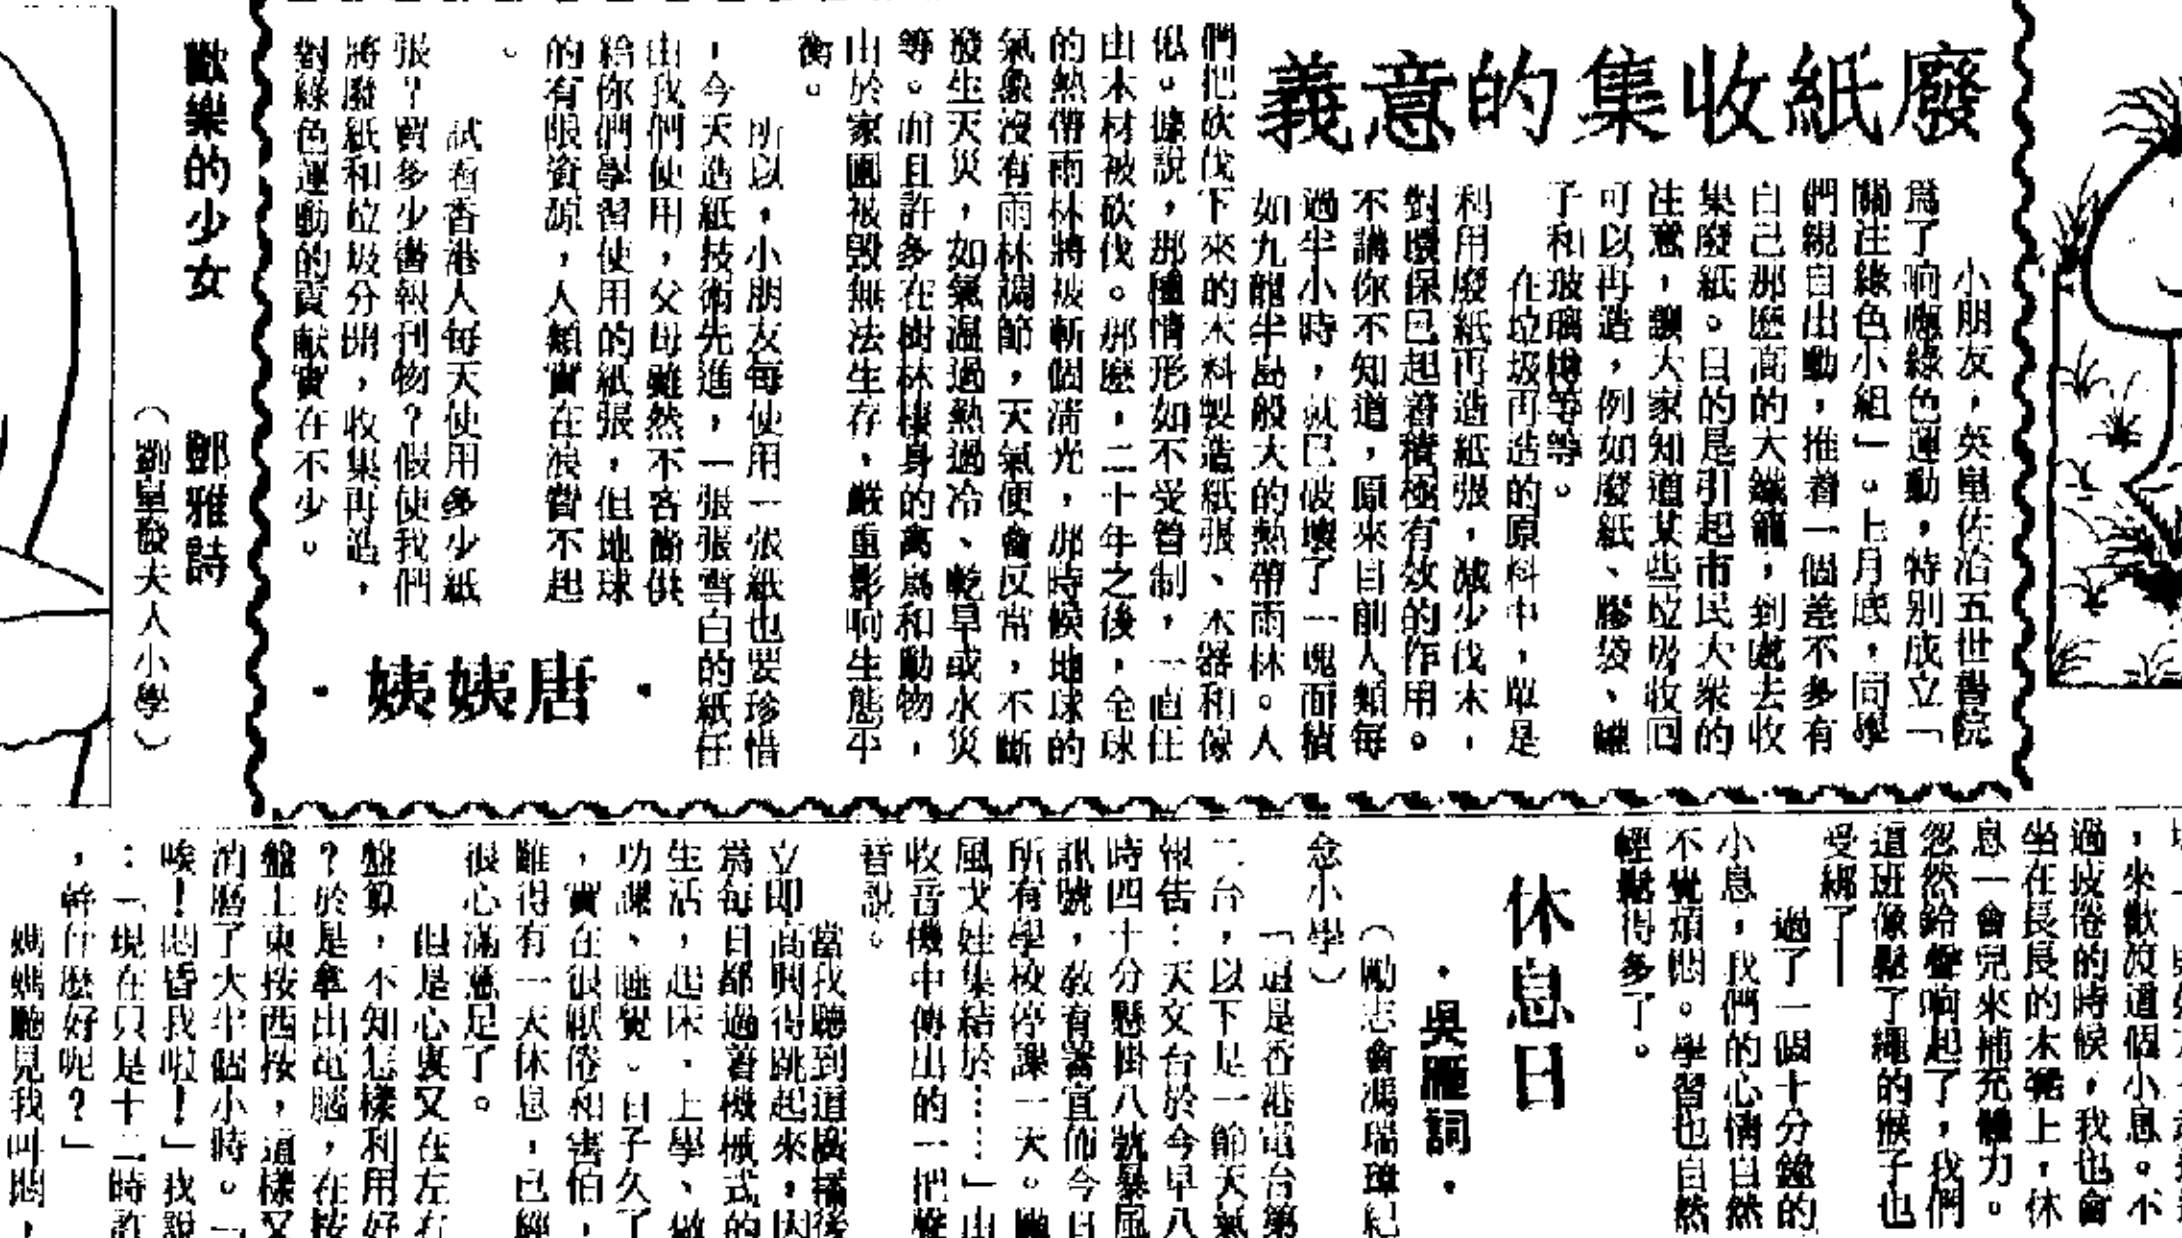 廢紙收集的意義
小朋友，英皇佐治五世書院
爲了响應綠色運動，特別成立「
關注綠色小組」。上月底，同學
們親自出動，推着一個差不多有
自己那麽高的大鐵籠，到處去收
集廢紙。目的是引起市民大衆的
注意，讓大家知道某些垃圾收回
可以再造，例如廢紙、膠袋、罐
子和玻璃樽等等。
在垃圾再造的原料中，單是
利用廢紙再造紙張，減少伐木，
對環保已起着積極有效的作用。
不講你不知道，原來目前人類每
過半小時，就已破壞了一塊面積
如九龍半島般大的熱帶雨林。人
們把砍伐下來的木料製造紙張、木器和傢
俬。據說，那種情形如不受管制，一直任
由木材被砍伐。那麽，二十年之後，全球
的熱帶雨林將被斬個清光，那時候地球的
氣象沒有雨林調節，天氣便會反常，不斷
發生天災，如氣溫過熱過冷、乾旱或水災
等。而且許多在樹林棲身的禽鳥和動物，
由於家園被毀無法生存，嚴重影响生態平
衡。
所以，小朋友每使用一張紙也要珍惜
，今天造紙技術先進，一張張雪白的紙任
由我們使用，父母雖然不吝嗇供
給你們學習使用的紙張，但地球
的有限資源，人類實在浪費不起
。
試看香港人每天使用多少紙
張？買多少書報刊物？假使我們
將廢紙和垃圾分開，收集再造，
對綠色運動的貢獻實在不少。
·唐姨姨·
歡樂的少女　鄧雅詩
（劉皇發夫人小學）
，來歡渡這個小息。不
過疲倦的時候，我也會
坐在長長的木櫈上，休
息一會兒來補充體力。
忽然鈴聲响起了，我們
這班像鬆了繩的猴子也
受綁了——
過了一個十分鐘的
小息，我們的心情自然
不覺煩悶。學習也自然
輕鬆得多了。
休息日
·吳雁詞·
（勵志會馮瑞璋紀
念小學）
「這是香港電台第
二台，以下是一節天氣
報告：天文台於今早八
時四十分懸掛八號暴風
訊號，敎育署宣佈今日
所有學校停課一天。颶
風戈娃集結於……」由
收音機中傳出的一把聲
音說。
當我聽到這廣播後
立即高興得跳起來，因
爲每日都過着機械式的
生活，起床、上學、做
功課、睡覺。日子久了
，實在很厭倦和害怕，
難得有一天休息，已經
很心滿意足了。
但是心裏又在左右
盤算，不知怎樣利用好
？於是拿出電腦，在按
盤上東按西按，這樣又
消磨了大半個小時。「
唉！悶昏我啦！」我說
：「現在只是十二時許
，幹什麽好呢？」
媽媽聽見我叫悶，